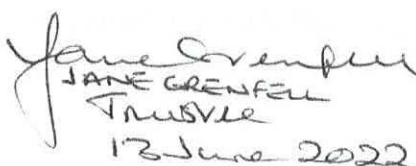 Jane Grenfell
JANE GRENFELL
Trustee
13 June 2022